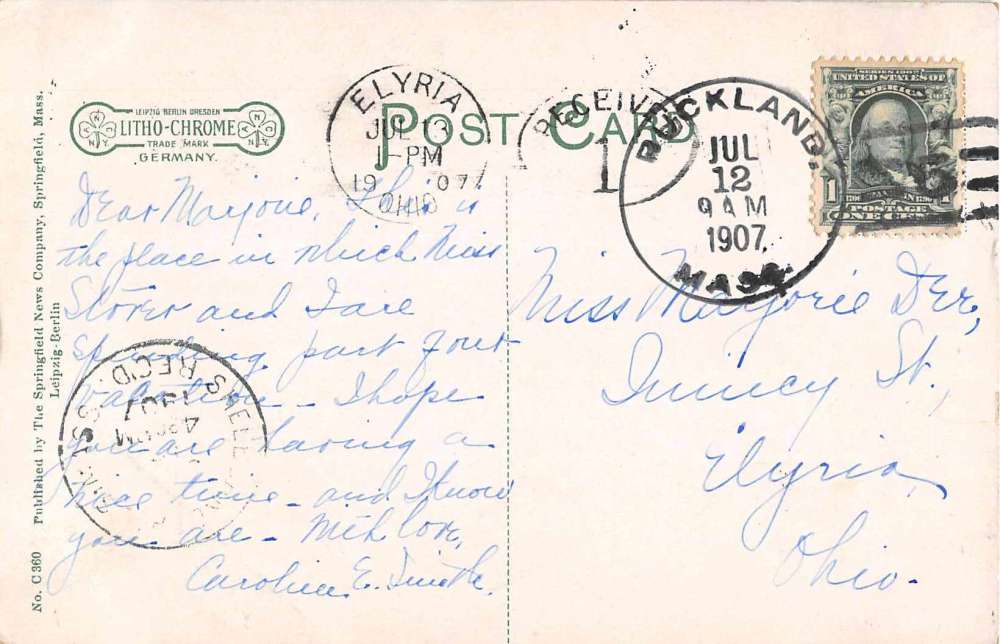 POST CARD
LEIPZIG BERLIN DRESDEN
LITHO-CHROME
TRADE MARK
GERMANY.
N.Y.
ELYRIA
JUL 13
1-PM
1907
OHIO
RECEIVED
1
BUCKLAND,
JUL
12
9 AM
1907
MASS.
SERIES 1902
UNITED STATES OF
AMERICA
1 1
POSTAGE
ONE CENT
Dear Marjorie, This is
the place in which Miss
Storer and I are
spending part of our
vacation - I hope
you are having a
nice time - and I know
you are - With love,
Caroline E. Smith.
Miss Marjorie Dee,
Quincy St.,
Elyria,
Ohio.
SHELB
REC'D.
4 PM
1907
MASS.
No. C 360 Published by The Springfield News Company, Springfield, Mass.
Leipzig-Berlin